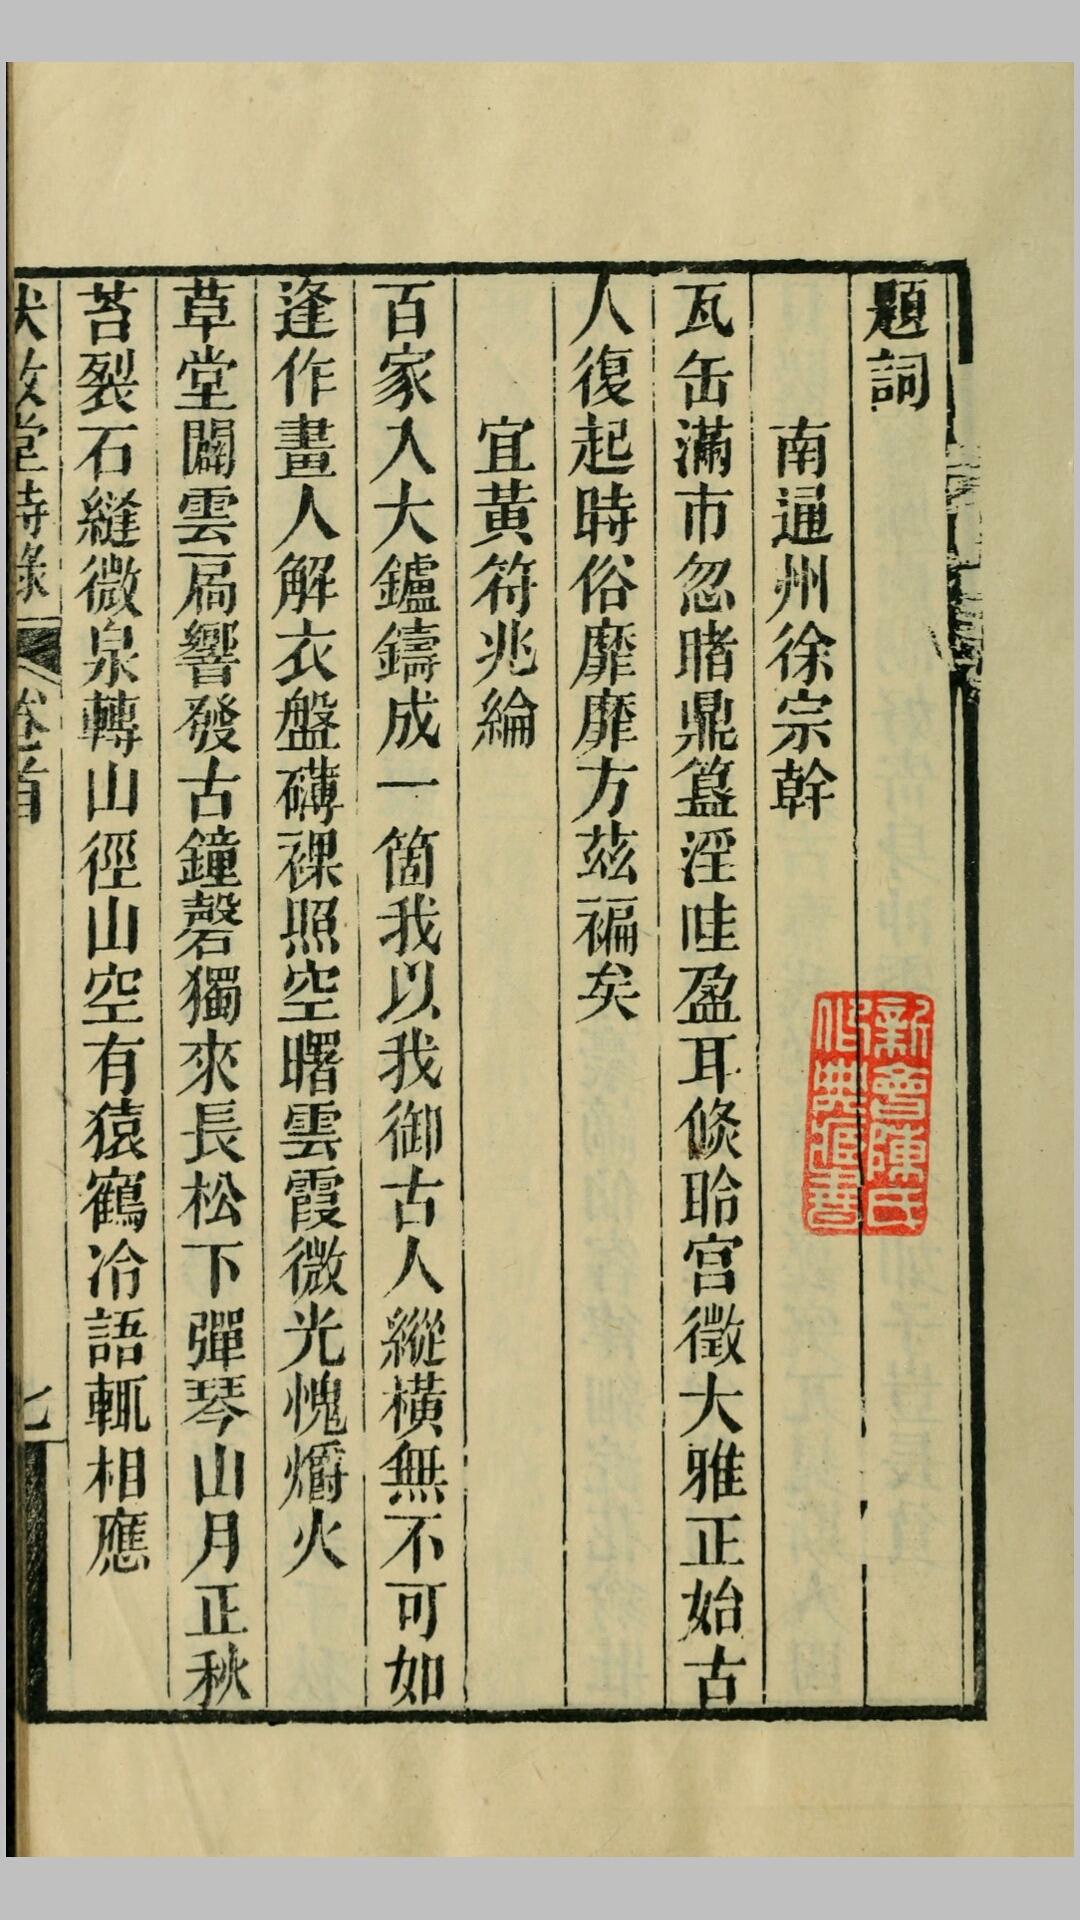 題詞
南通州徐宗幹
瓦缶滿市忽睹鼎簋淫哇盈耳倐聆宮徵大雅正始古
人復起時俗靡靡方茲褊矣
宜黄符兆綸
百家入大鑪鑄成一箇我以我御古人縱橫無不可如
逢作畫人解衣盤礴裸照空曙雲霞微光愧爝火
草堂闢雲扃響發古鐘磬獨來長松下彈琴山月正秋
苔裂石縫微泉轉山徑山空有猿鶴冷語輒相應
堂詩錄
卷首
新會陳氏